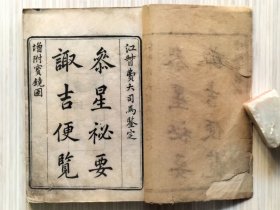 江督費大司馬鑒定
叅星祕要
諏吉便覽
增附寶鏡圖